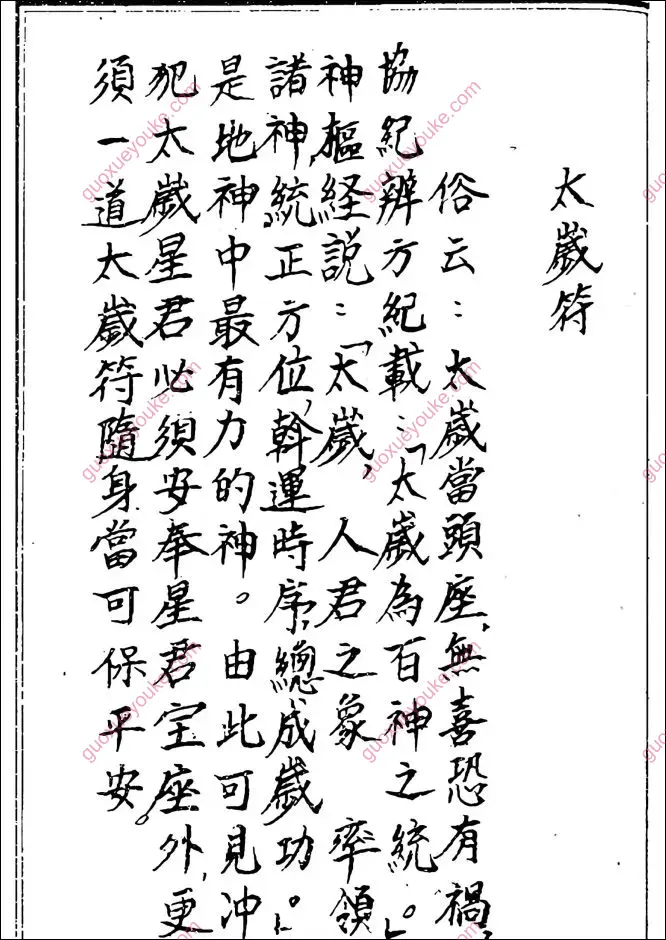 太歲符
俗云：太歲當頭座，無喜恐有禍，
協紀辨方紀載：「太歲為百神之統。」
神樞経説：「太歲，人君之象 率領
諸神，統正方位，斡運時序，總成歲功。」
是地神中最有力的神。由此可見冲
犯太歲星君必須安奉星君宝座外，更
須一道太歲符隨身當可保平安。
guoxueyouke.com